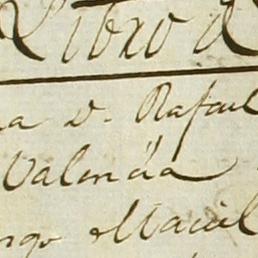 Libro d
a D. Rafael
Valencia
ngo Maciel